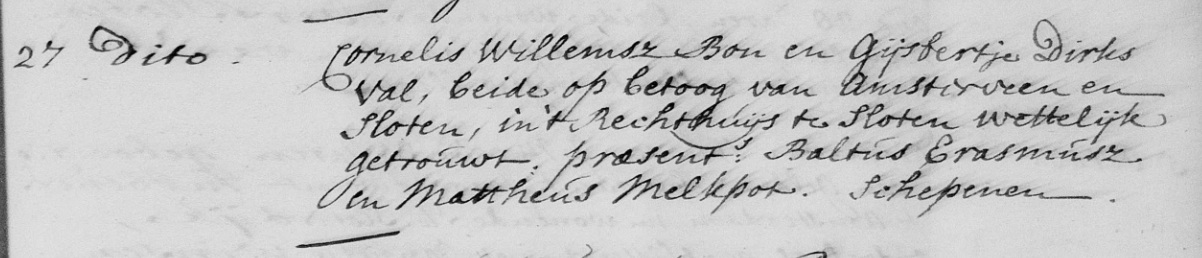 27 Dito. Cornelis Willemsz Bon en Gijsbertje Dirks
Val, beide op betoog van Amsterveen en
Sloten, in't Rechthuijs te Sloten wettelijk
getrouwt. præsent:s Baltus Erasmusz
en Mattheus Melkpot. Schepenen.